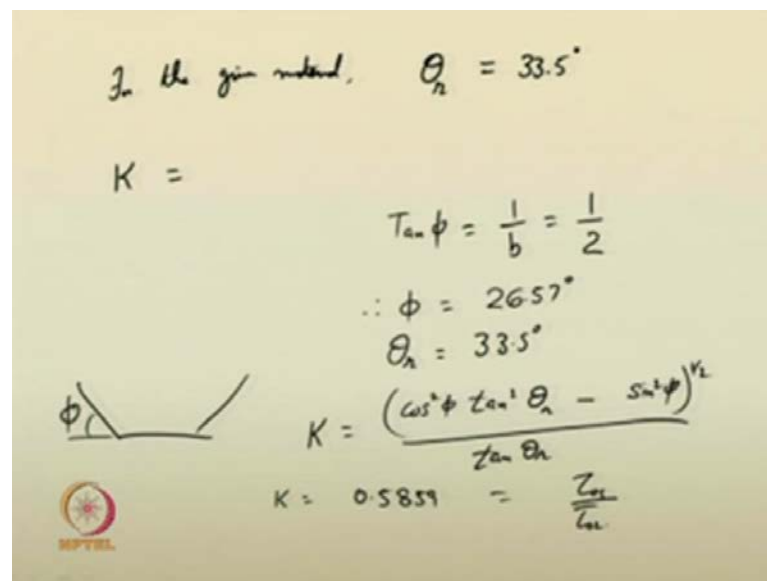 For the given material, θr = 33.5°
K =
Tan ϕ = 1/b = 1/2
∴ ϕ = 26.57°
θr = 33.5°
ϕ
K = (cos² ϕ tan² θr − sin² ϕ)^1/2 / tan θr
K = 0.5859 = τ / τ
NPTEL